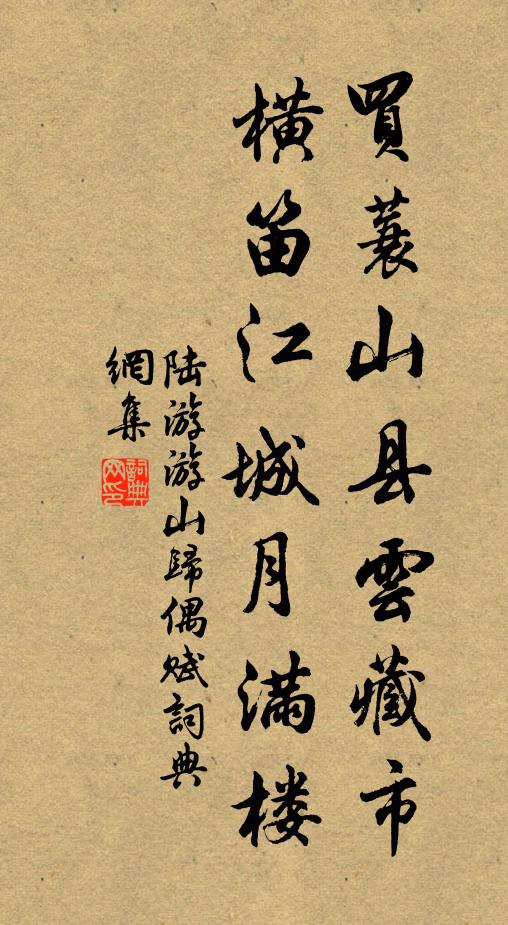 買蓑山县雲藏市
橫笛江城月滿楼
陆游游山歸偶赋詞典
網集
詞典网印